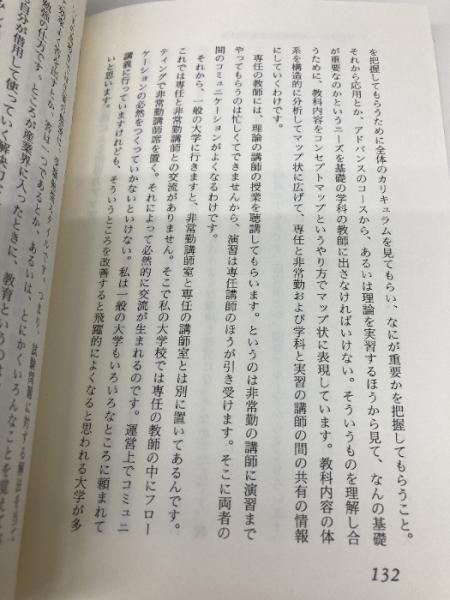 を把握してもらうために全体のカリキュラムを見てもらい、なにが重要かを把握してもらうこと。
それから応用とか、アドバンスのコースから、あるいは理論を実習するほうから見て、なんの基礎
が重要なのかというニーズを基礎の学科の教師に出さなければいけない。そういうものを理解し合
うために、教科内容をコンセプトマップというやり方でマップ状に表現しています。教科内容の体
系を構造的に分析してマップ状に広げて、専任と非常勤および学科と実習の講師の間の共有の情報
にしていくわけです。
専任の教師には、理論の講師の授業を聴講してもらいます。というのは非常勤の講師に演習まで
やってもらうのは忙しくてできませんから、演習は専任講師のほうが引き受けます。そこに両者の
間のコミュニケーションがよくなるわけです。
それから、一般の大学に行きますと、非常勤講師室と専任の講師室とは別に置いてあるんです。
これでは専任と非常勤講師との交流がありません。そこで私の大学校では専任の教師の中にフロー
ティングで非常勤講師席を置く。それによって必然的に交流が生まれるのです。運営上でコミュニ
ケーションの必然をつくっていかないといけない。私は一般の大学もいろいろなところに頼まれて
講義に行っていますけれども、そういうところを改善すると飛躍的によくなると思われる大学が多
いと思います。
132
試験問題に対する解法を
答は一つであるとか、あるいは、とにかくいろんなことを覚えて
勉強の仕方です。ところが産業界に入ったときに、教育というのは
自分が借用して使っていく解決